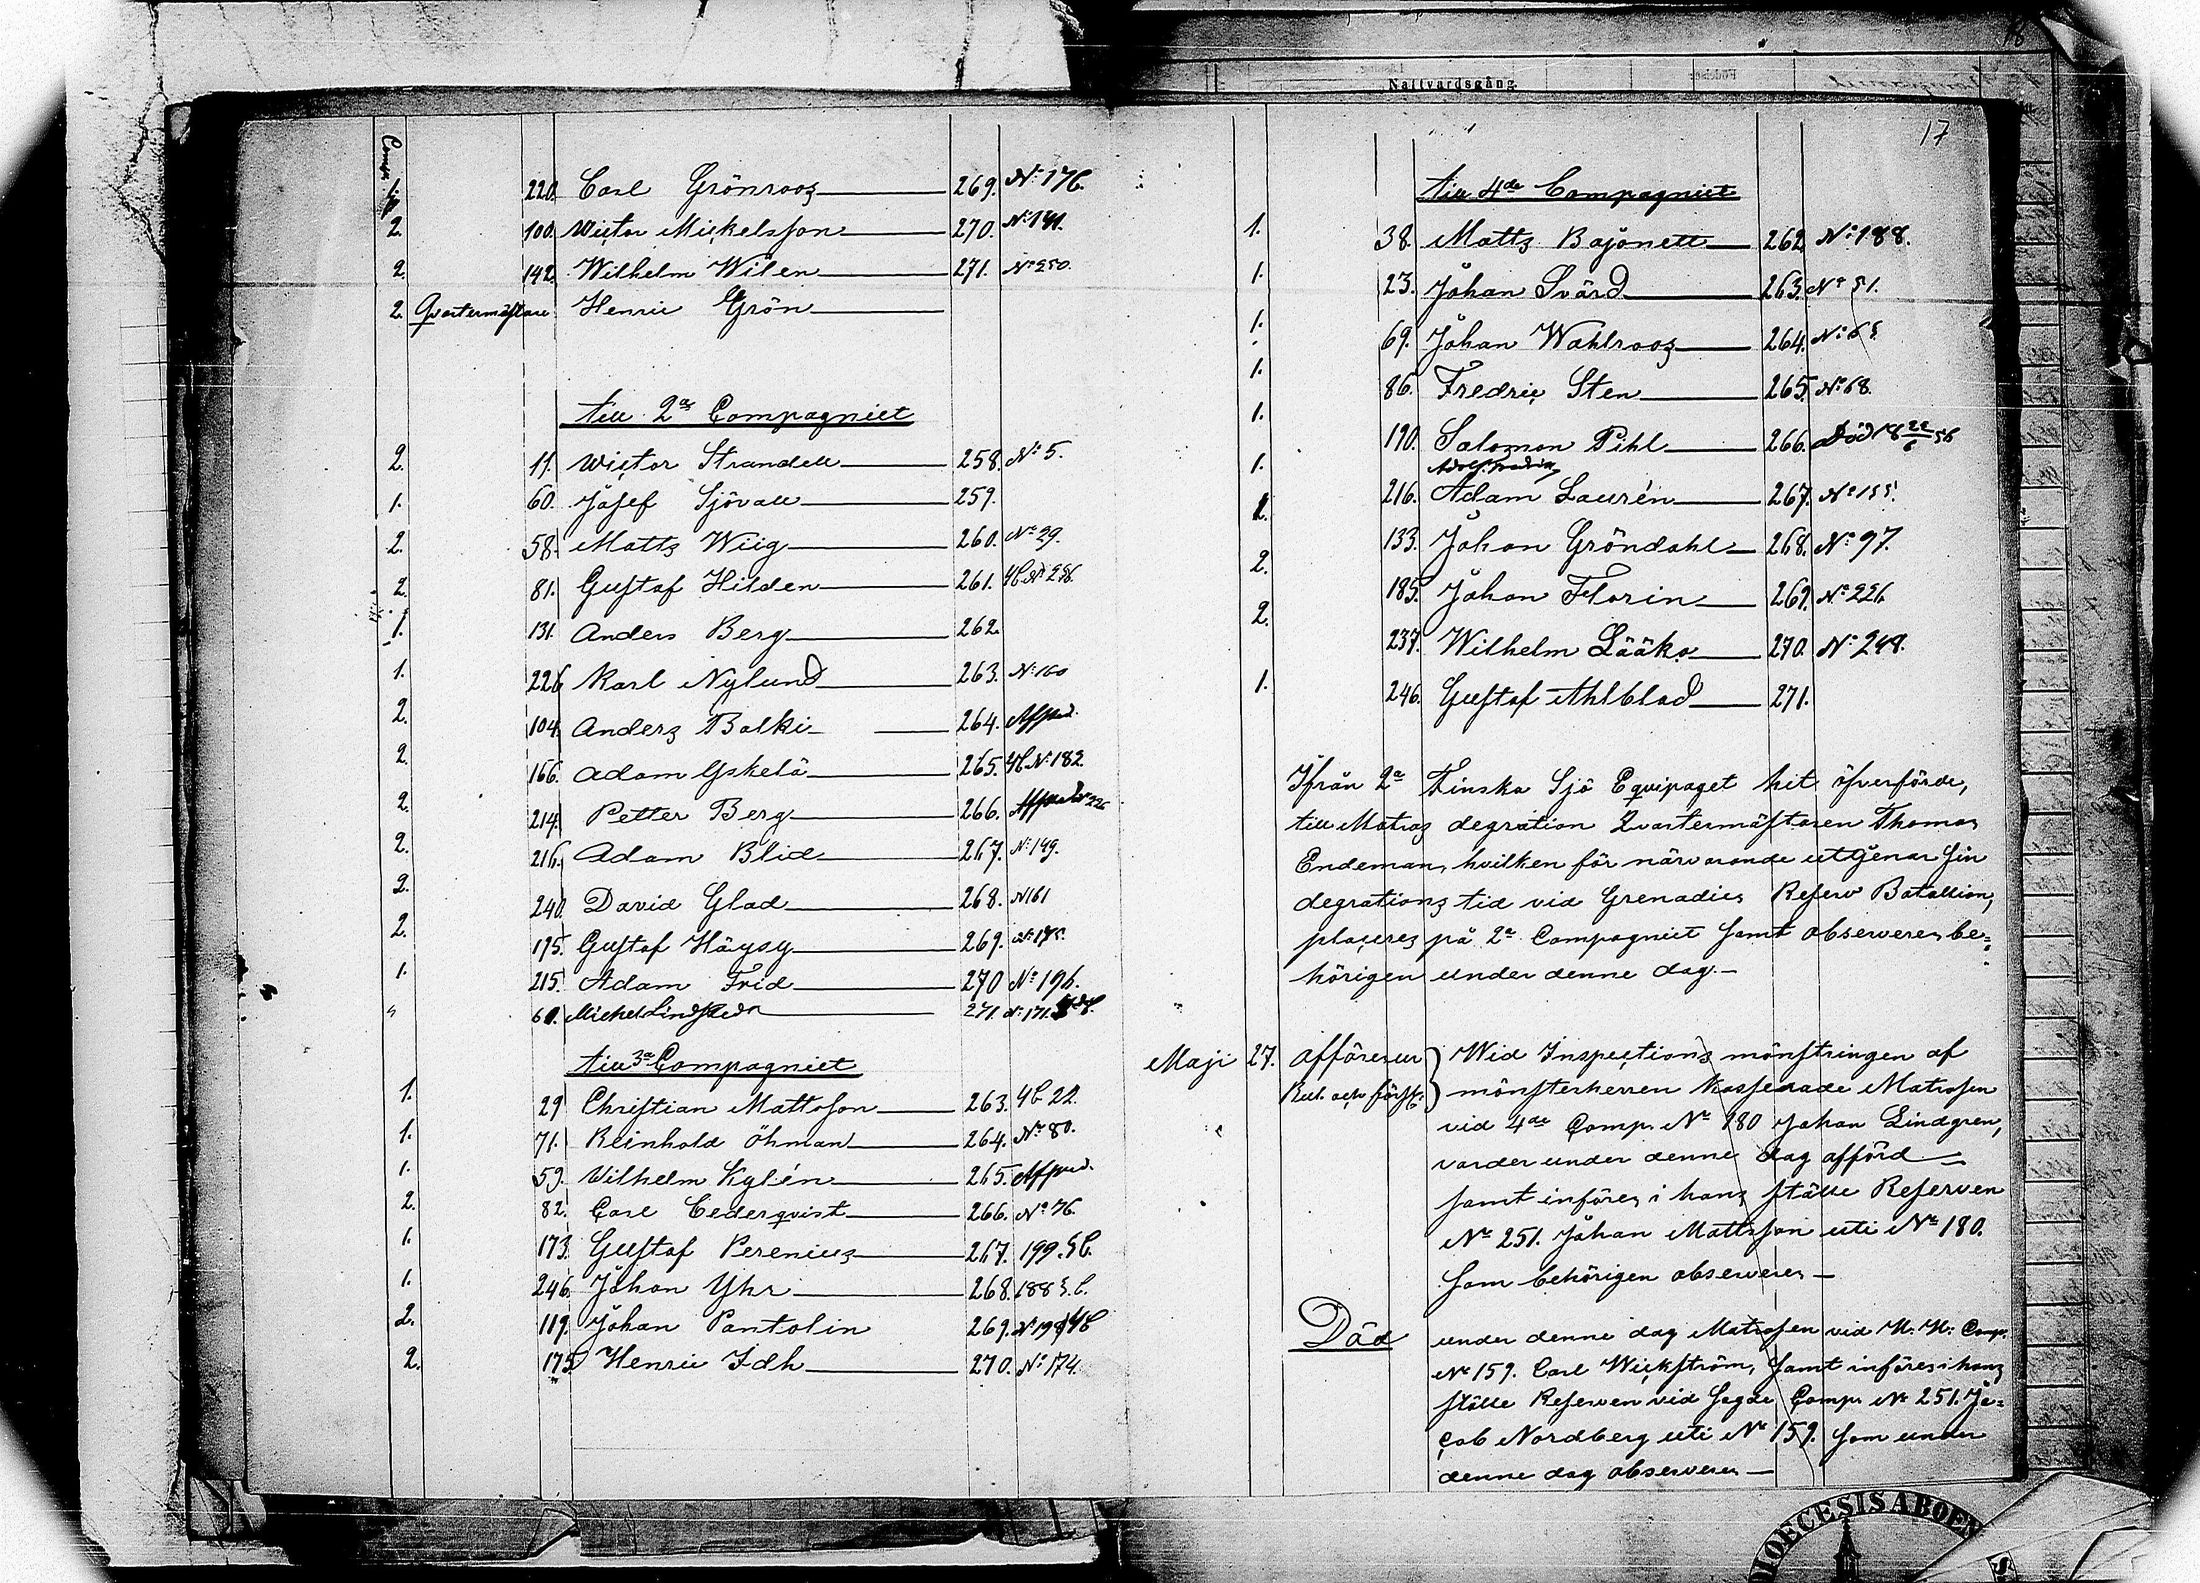 Nattvardsgång.
17
Comp.
1. 220. Carl Grönroos 269. No: 176.
2. 100. Wictor Mickelsson 270. No: 141.
2. 142. Wilhelm Wilen 271. No 250.
2. Qvartermästare Henric Grön
till 2a Compagniet
2. 11. Wictor Strandell 258. No: 5.
1. 60. Josef Sjövall 259.
2. 58. Matts Wiig 260. No: 29.
2. 81. Gustaf Hilden 261. 4C No 236.
1. 131. Anders Berg 262.
1. 226 Karl Nylund 263. No: 160
2. 104. Anders Balki 264. Afförd.
2. 166. Adam Yskelä 265. 4C No: 182.
2. 214. Petter Berg 266.
2. 216. Adam Blid 267. No: 149.
2. 240. David Glad 268. No 161
2. 195. Gustaf Häysy 269. No: 175.
1. 215. Adam Frid 270 No: 196.
60. Michel Lindstedt 271. No: 171.
till 3a Compagniet
1. 29 Christian Mattsson 263. 4C 22.
1. 71. Reinhold Öhman 264. No: 80.
1. 59. Vilhelm Kylén 265. Afförd.
2. 82. Carl Cederqvist 266. No 76.
1. 173. Gustaf Perenius 267. 199. 3C.
1. 246. Johan Yhr 268. 188 3.C.
2. 119. Johan Pantolin 269. No 198 4C
2. 175 Henric Idh 270. No: 174.
till 4de Compagniet
1. 38. Matts Bajonett 262 No: 188.
1. 23. Johan Svärd 263. No 51.
1. 69. Johan Wahlroos 264. No: 65
1. 86. Fredric Sten 265. No: 68.
1. 190. Salomon Pihl 266. Död 18 22/6 56
Adolf Fredrik
1. 216. Adam Laurén 267. No: 155.
1. 133. Johan Gröndahl 268. No: 97.
2. 185. Johan Florin 269. No: 226
2. 237. Wilhelm Lääko 270. No: 248.
1. 246. Gustaf Ahlblad 271.
Ifrån 2a Finska Sjö Equipaget hit öfverförde,
till Matros degration Qvartermästaren Thomas
Endeman, hvilken för närvarande uttjenar sin
degrations tid vid Grenadier Reserv Batallion,
placeres på 2a Compagniet samt observeres be=
hörigen under denne dag.—
Maji 27. Afföres ur Wid Inspections mönstringen af
Rul. och först. mönsterherren kasserade Matrosen
vid 4de Comp. No 180 Johan Lindgren,
varder under denne dag afförd —
samt införes i hans ställe Reserven
No 251. Johan Mattsson uti No 180.
som behörigen observeres —
Död under denne dag Matrosen vid H. H: Comp.
No 159. Carl Wickström, samt införes i hans
ställe Reserven vid sagde Comp. No 251. Ja=
cob Nordberg uti No 159. som under
denne dag observeres —
DIOECESIS ABOEN